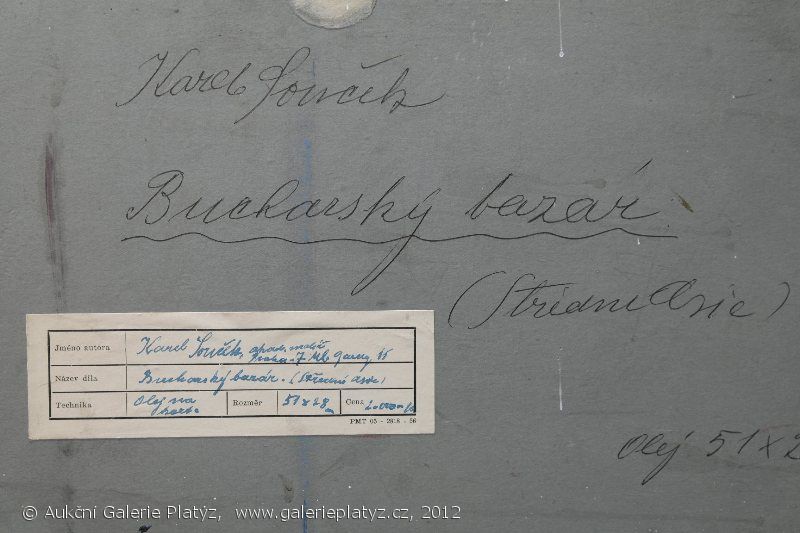 Karel Souček
Bucharský bazár
(Střední Asie)
Jméno autora Karel Souček, akad. malíř,
Praha 7
Název díla Bucharský bazár. (Střední Asie)
Technika Olej na Rozměr 51 x 28 Cena
PMT 05 - 2818 - 56
Olej 51 x 2
© Aukční Galerie Platýz, www.galerieplatyz.cz, 2012